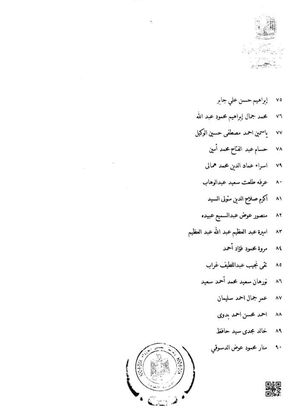 ٧٥ إبراهيم حسن علي جابر
٧٦ محمد جمال إبراهيم محمود عبد الله
٧٧ ياسمين احمد مصطفى حسين الوكيل
٧٨ حسام عبد الفتاح محمد أمين
٧٩ اسراء عماد الدين محمد همالى
٨٠ عرفه طلعت سعيد عبدالوهاب
٨١ أكرم صلاح الدين متولى السيد
٨٢ منصور عوض عبدالسميع عبيده
٨٣ اميرة عبد العظيم عبد الله عبد العظيم
٨٤ مروة محمود فؤاد أحمد
٨٥ تقى نجيب عبداللطيف غراب
٨٦ نورهان سعيد محمد أحمد سعيد
٨٧ عمر جمال احمد سليمان
٨٨ احمد محسن احمد بدوى
٨٩ خالد مجدى سيد حافظ
٩٠ منار محمود عوض الدسوقي